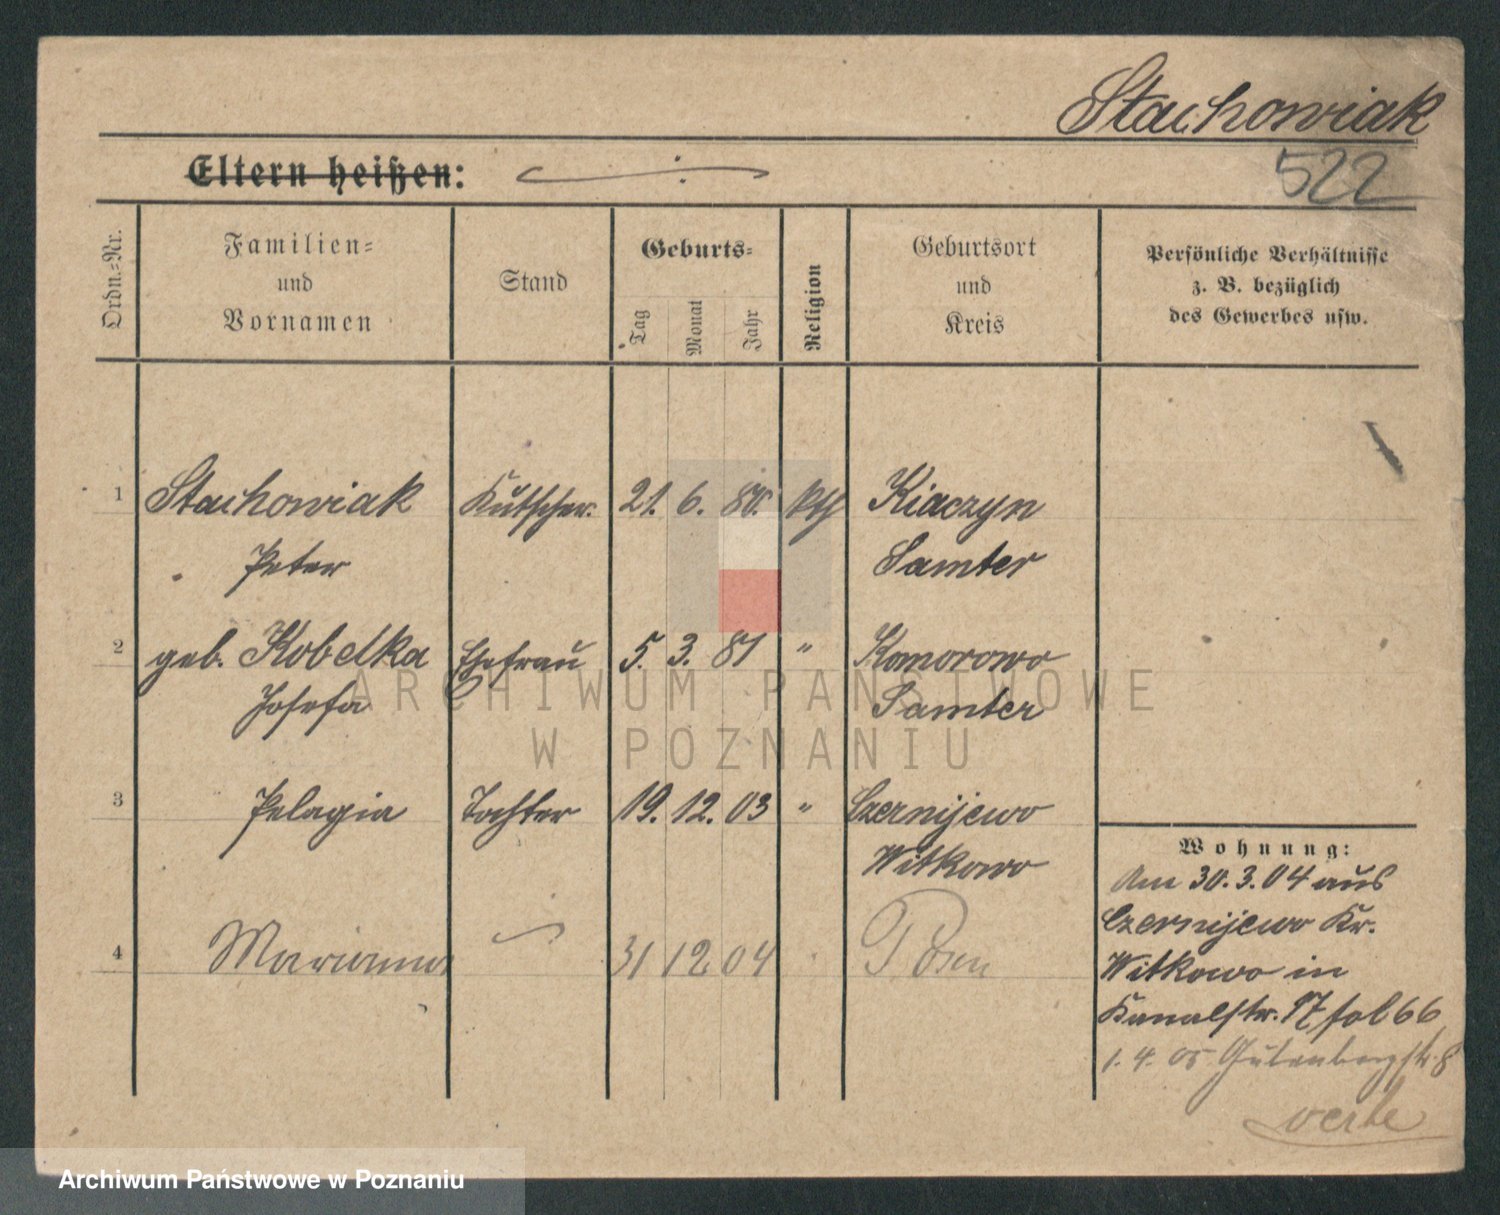 Stachowiak
522
Eltern heißen:
Ordn.=Nr.
Familien=
und
Vornamen
Stand
Geburts=
Tag
Monat
Jahr
Religion
Geburtsort
und
Kreis
Persönliche Verhältnisse
z. B. bezüglich
des Gewerbes usw.
1 Stachowiak Kutscher. 21. 6. 80. kth Kiaczyn
Peter Samter
2 geb. Kobelka Ehefrau 5. 3. 81 " Komorowo
Josefa Samter
3 Pelagia Tochter 19. 12. 03 " Czernijewo
Witkowo
4 Marianna 31 12 04 Posen
Wohnung:
Am 30.3.04 aus
Czernijewo Kr.
Witkowo in
Kanalstr. 17 fol 66
1. 4. 05 Gutenbergstr. 8
ARCHIWUM PAŃSTWOWE
W POZNANIU
Archiwum Państwowe w Poznaniu